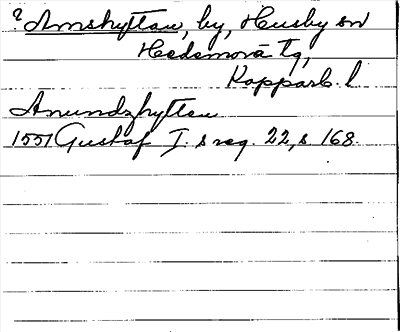 ? Amshyttan, by, Husby sn
Hedemora tg,
Kopparb. l
Anundzhyttan
1551 Gustaf I. s reg. 22, s 168.